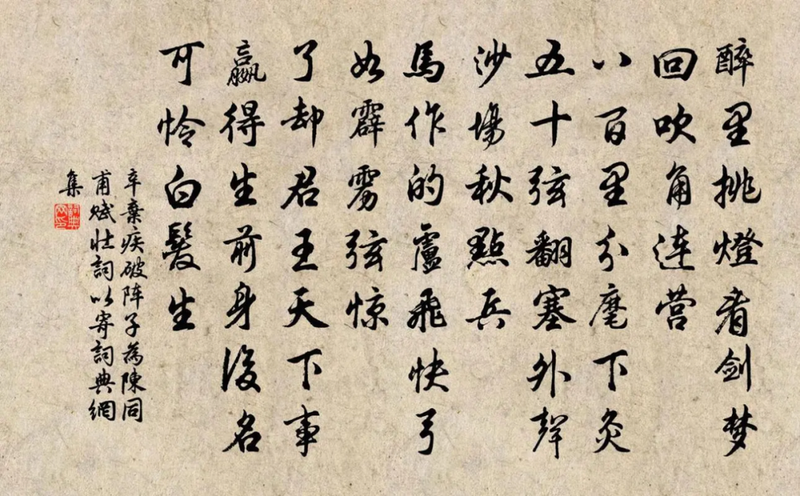 醉里挑燈看剑梦
回吹角连营
八百里分麾下灸
五十弦翻塞外聲
沙場秋點兵
馬作的盧飛快弓
如霹雳弦惊
了却君王天下事
赢得生前身後名
可怜白髮生
辛棄疾破阵子為陳同
甫賦壮詞以寄詞典網
集